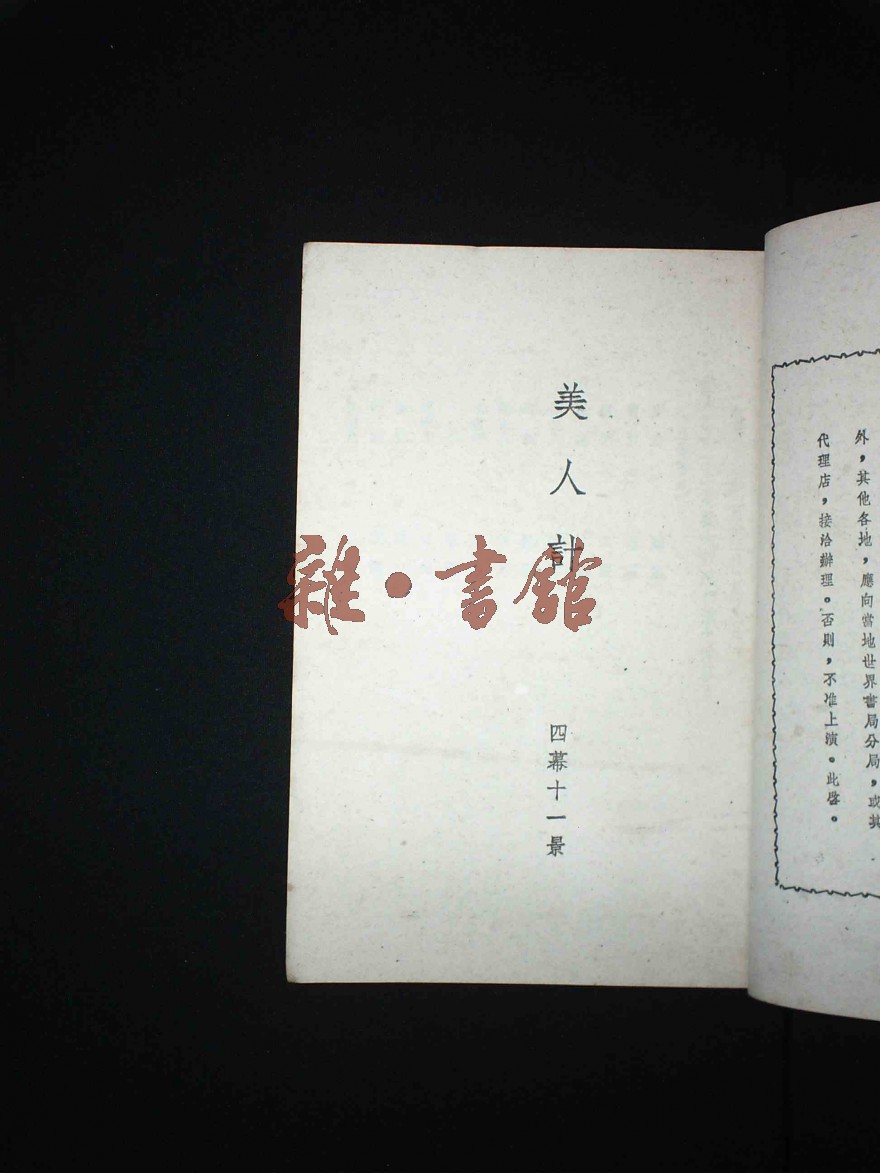 外，其他各地，應向當地世界書局分局，或其
代理店，接洽辦理。否則，不准上演。此啓。
美人計
四幕十一景
雜·書館